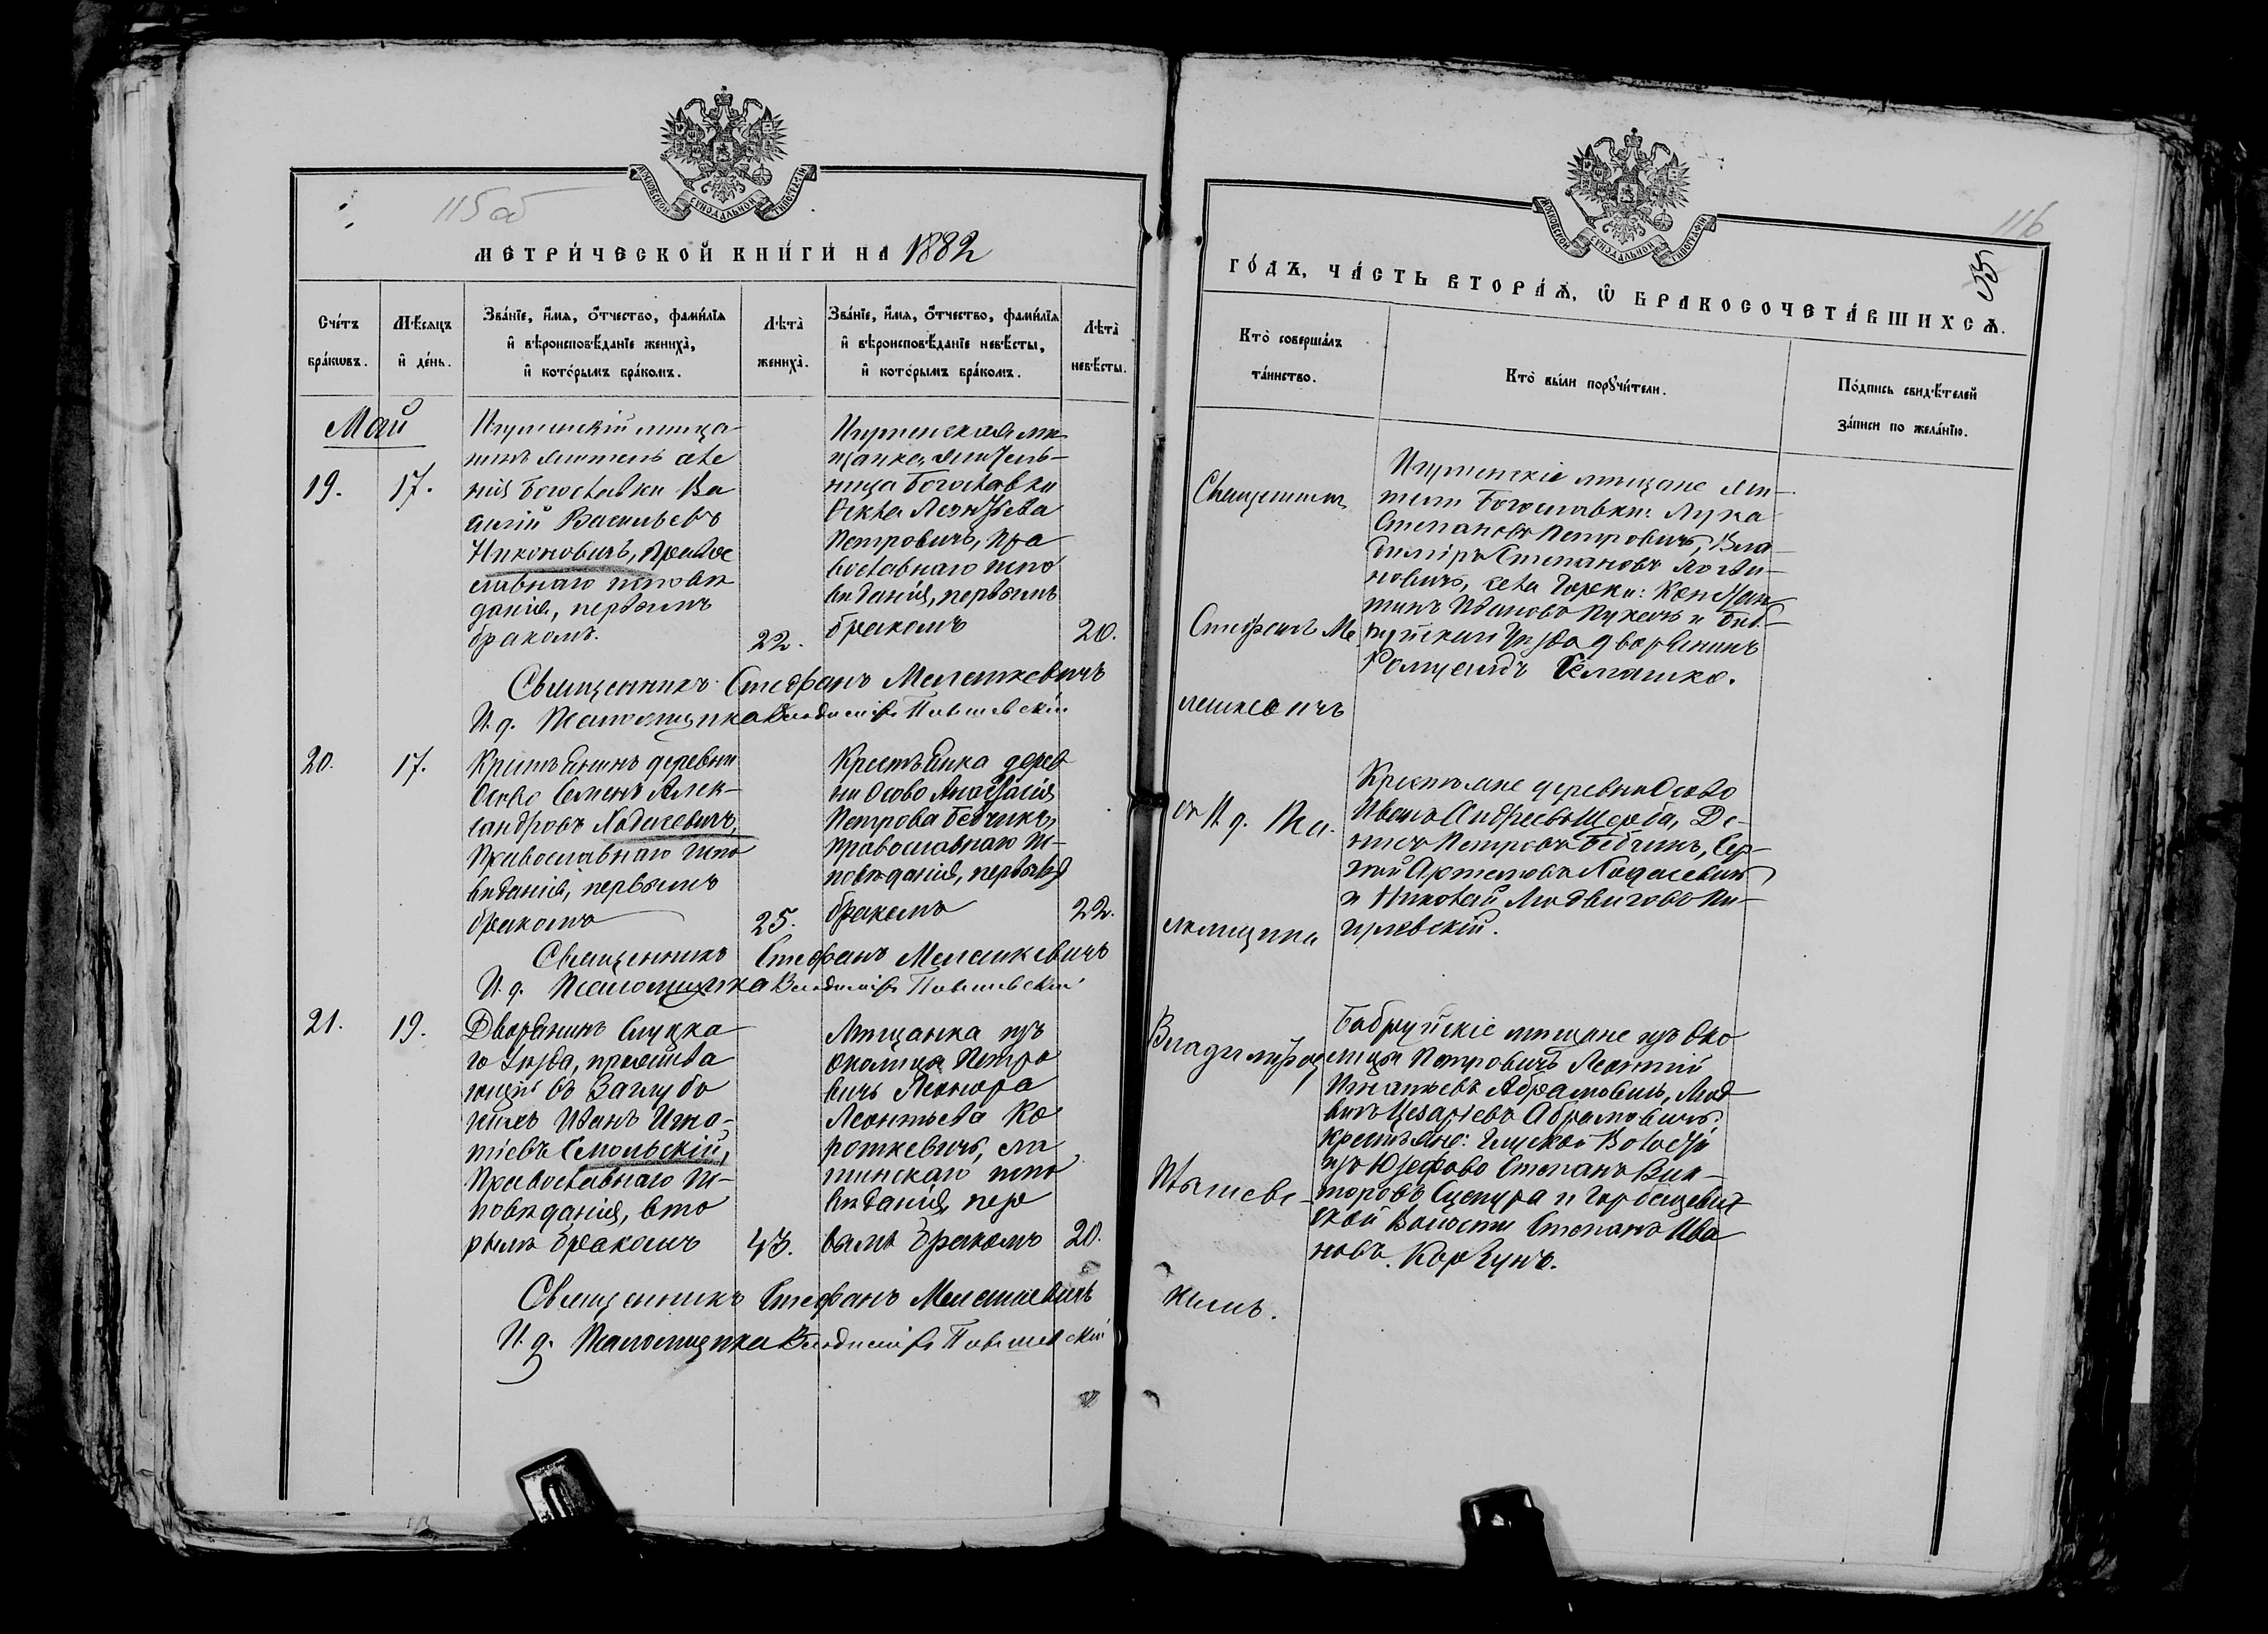 115 об
МОСКОВСКОЙ СѴНОДАЛЬНОЙ ТИПОГРАФІИ
МЕТРИ́ЧЕСКОЙ КНИ́ГИ НА 1882
Сче́тъ
бра́кѡвъ.
Мѣ́сяцъ
и҆ де́нь.
Зва́нїе, и҆́мя, о҆́тчество, фами́лїя
и҆ вѣроисповѣ́данїе жениха̀,
и҆ кото́рымъ бра́комъ.
Лѣ́та̀
жениха̀.
Зва́нїе, и҆́мя, о҆́тчество, фами́лїя
и҆ вѣроисповѣ́данїе невѣ́сты,
и҆ кото́рымъ бра́комъ.
Лѣ́та̀
невѣ́сты.
Май
19.
17.
Игуменскій мѣща-
нинъ житель селе
нія Богославки Ва
силій Васильевъ
Никоновичъ, Право
славнаго исповѣ
данія, первымъ
бракомъ.
22.
Игуменская мѣ
щанка, житель-
ница Богославки
Фекла Леонтьева
Петровичъ, Пра
вославнаго испо
вѣданія, первымъ
бракомъ
20.
Священникъ Стефанъ Мелешкевичъ
И. д. Псаломщика Владиміръ Пявшевскій
20.
17.
Крестьянинъ деревни
Осово Семенъ Алек-
сандровъ Ходасевичъ,
Православнаго испо
вѣданія, первымъ
бракомъ
25.
Крестьянка дерев
ни Осово Анастасія
Петрова Бедчикъ,
Православнаго ис-
повѣданія, первымъ
бракомъ
22.
Священникъ Стефанъ Мелешкевичъ
И. д. Псаломщика Владиміръ
21.
19.
Дворянинъ Слуцка
го Уѣзда, прожива
ющій въ Заглубо
Иванъ Игна-
тіевъ Смольскій,
Православнаго ис-
повѣданія, вто
рымъ бракомъ
43.
Мѣщанка изъ
околицы Петро
вичъ Леонора
Леонтьева Ко
роткевичъ, ла
тинскаго испо
вѣданія, пер
вымъ бракомъ
20.
Священникъ Стефанъ Мелешкевичъ
И. д. Псаломщика Владиміръ
116
55
МОСКОВСКОЙ СѴНОДАЛЬНОЙ ТИПОГРАФІИ
ГО́ДЪ, ЧА́СТЬ ВТОРА́Я, Ѽ БРАКОСОЧЕТА́ВШИХСЯ.
Кто̀ соверша́лъ
та́инство.
Кто̀ бы́ли порꙋчи́тели.
По́дпись свидѣ́телей
за́писи по жела́нїю.
Священникъ
Стефанъ Ме
лешкевичъ
съ И. д. Пса-
ломщика
Владиміромъ
кимъ.
Игуменскіе мѣщане жи-
тели Богославки: Лука
Степановъ Петровичъ, Вла-
диміръ Степановъ Логви-
новичъ, села Горки: Констан
тинъ Ивановъ и Боб-
руйскаго Уѣзда дворянинъ
Ромуальдъ Семашко.
Крестьяне деревни Осово
Иванъ Андреевъ Щерба, Де-
нисъ Петровъ Бедчикъ, Сер-
гѣй Артемовъ Ходасевичъ
и Николай Людвиговъ Пи-
гулевскій.
Бобруйскіе мѣщане изъ око
лицы Петровичъ Леонтій
Игнатьевъ Абрамовичъ, Люд-
вигъ Цезаріевъ Абрамовичъ.
Крестьяне: Глуской Волости
изъ Юзефово Степанъ Вик-
торовъ Сцепура и Горбацевич-
ской Волости Степанъ Ива
новъ Корзунъ.